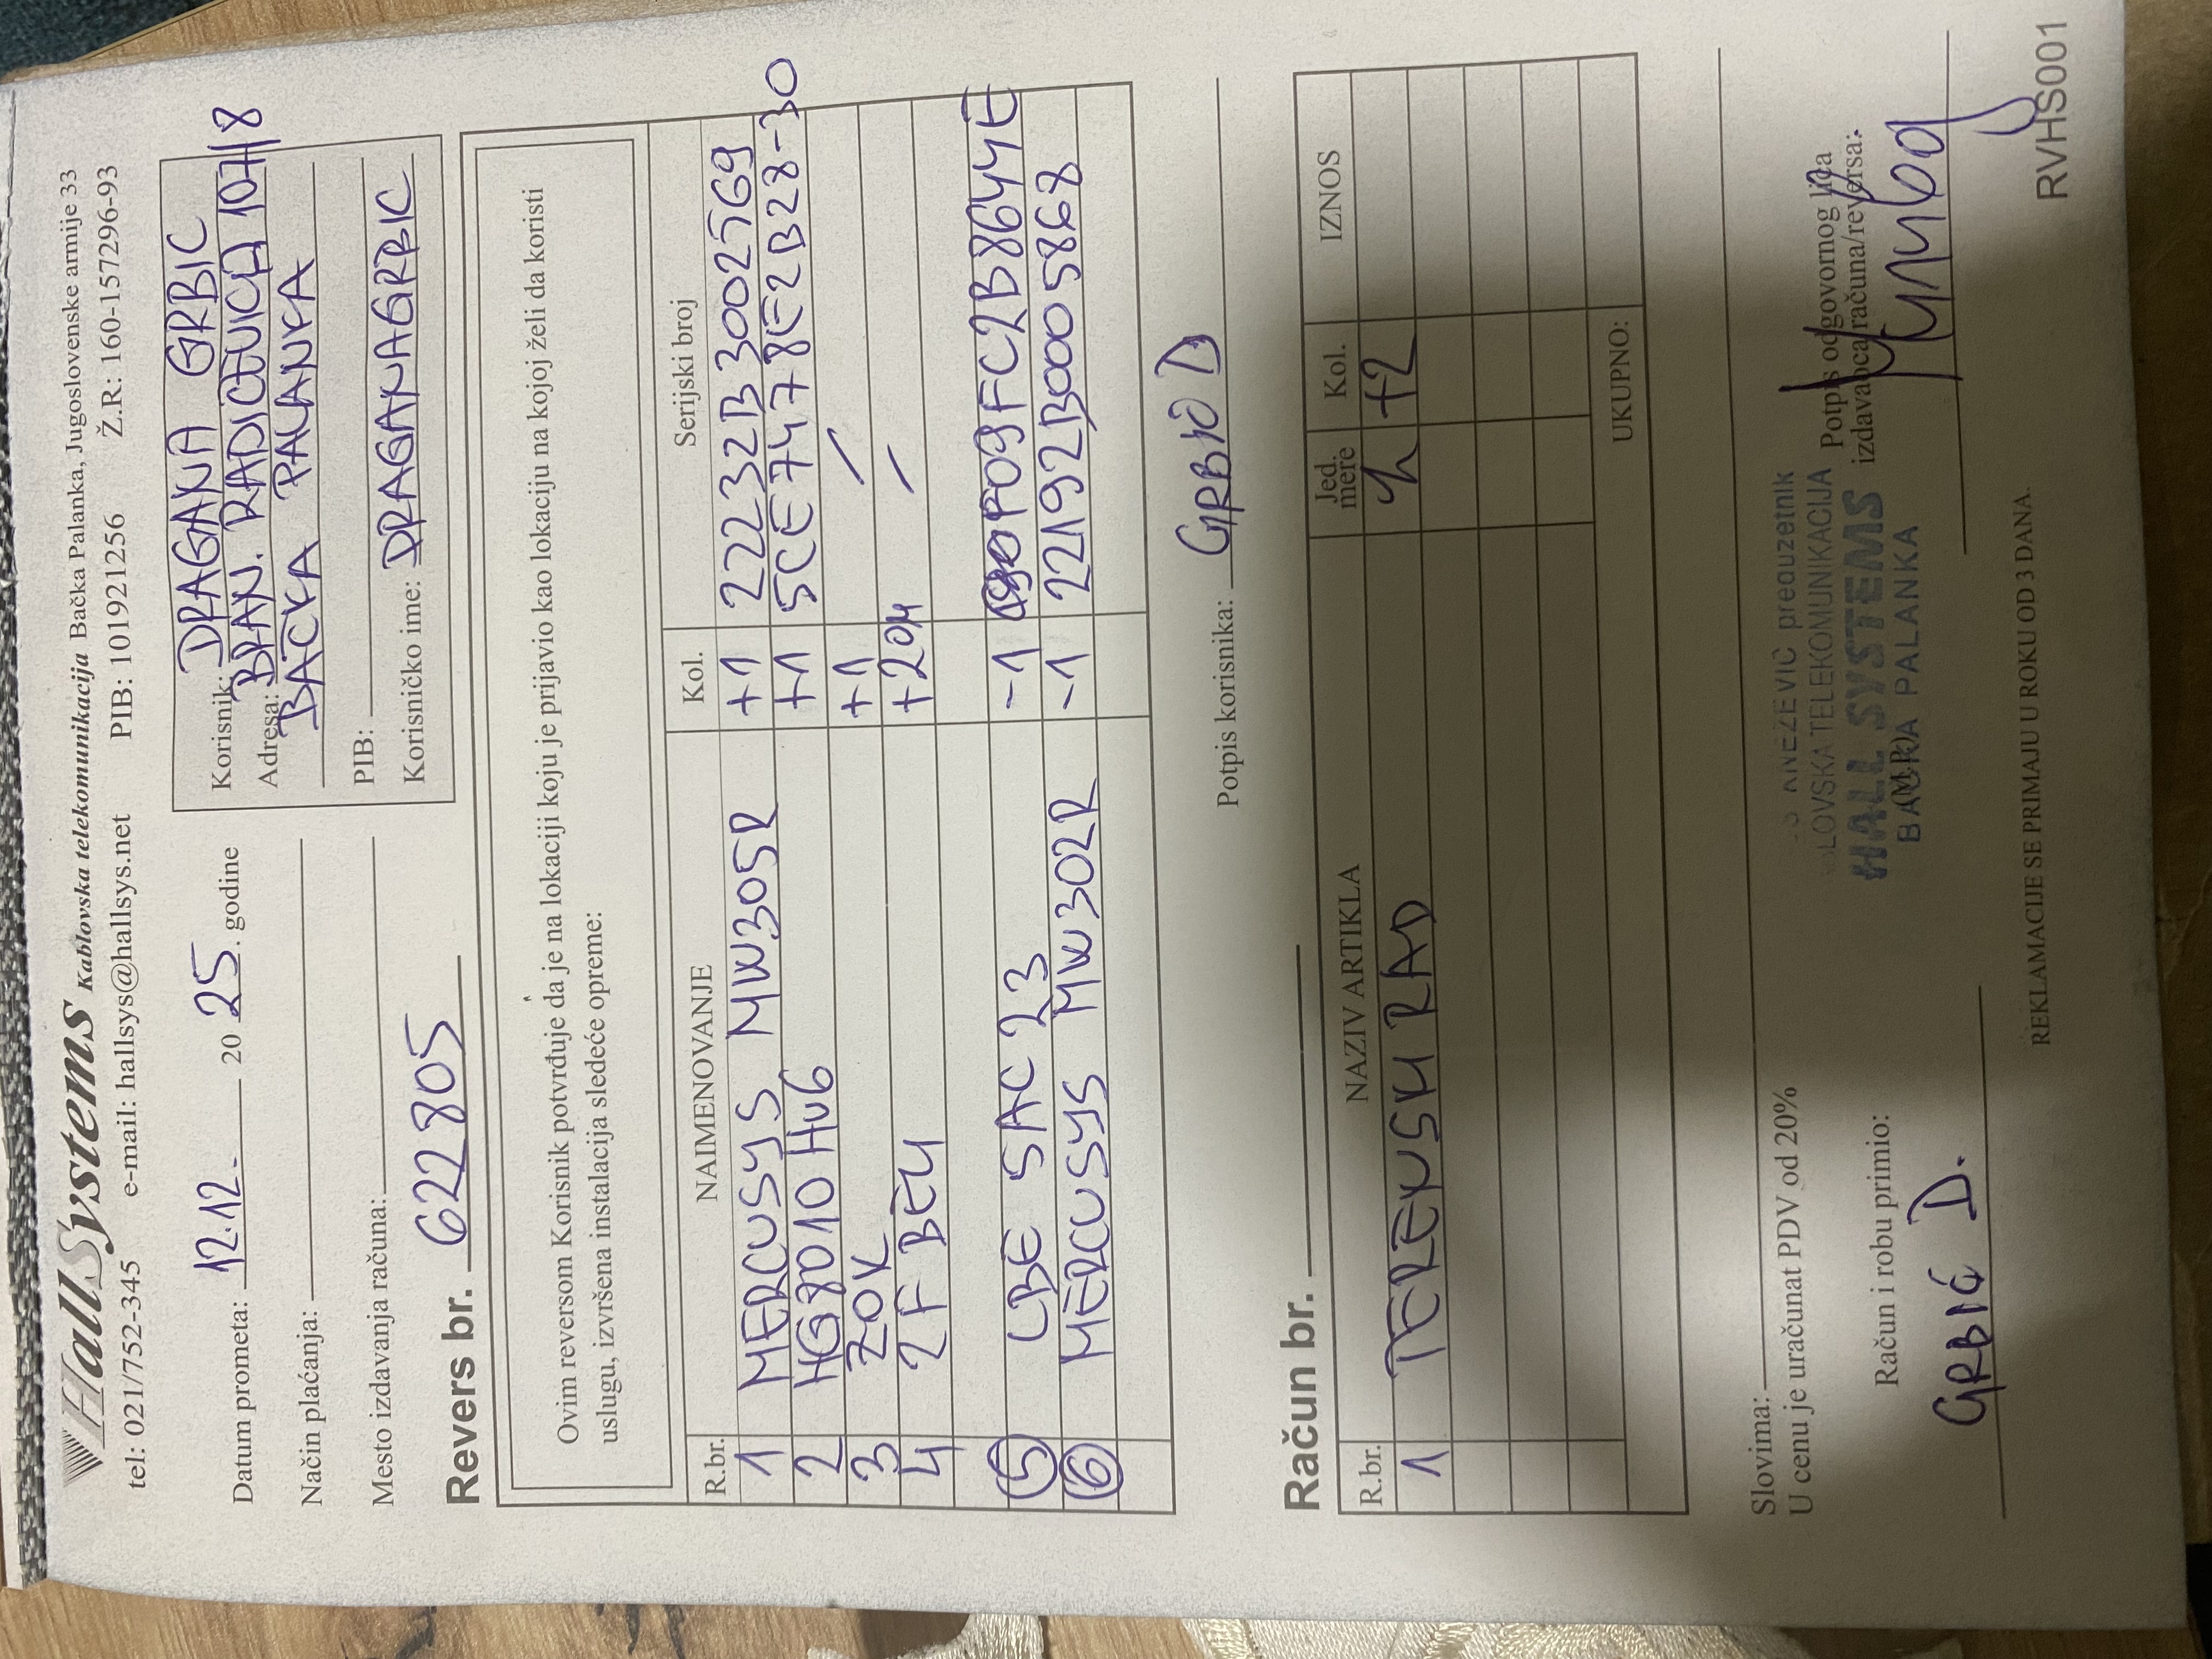 HallSystems Kablovska telekomunikacija Bačka Palanka, Jugoslovenske armije 33
tel: 021/752-345 e-mail: hallsys@hallsys.net PIB: 101921256 Ž.R: 160-157296-93
Datum prometa: 12.12. 20 25. godine
Način plaćanja:
Mesto izdavanja računa:
Korisnik: DRAGANA GRBIC
Adresa: BRAN. RADICEVICA 107/8
BACKA PALANKA
PIB:
Korisničko ime: DRAGANAGRBIC
Revers br. 622805
Ovim reversom Korisnik potvrđuje da je na lokaciji koju je prijavio kao lokaciju na kojoj želi da koristi
uslugu, izvršena instalacija sledeće opreme:
R.br. NAIMENOVANJE Kol. Serijski broj
1 MERCUSYS MW305R +1 22232B3002569
2 HG8010Hv6 +1 5CE7478E2B28-30
3 ZOK +1 /
4 2F BEU +20m /
5 LBE 5AC 23 -1 F09FC2B8644E
6 MERCUSYS MW302R -1 22192B0005868
Potpis korisnika: GRBIĆ D
Račun br.
R.br. NAZIV ARTIKLA Jed. mere Kol. IZNOS
1 TERENSKI RAD h +2
UKUPNO:
Slovima:
U cenu je uračunat PDV od 20%
Račun i robu primio:
GRBIĆ D.
KNEŽEVIĆ preduzetnik
TELEKOMUNIKACIJA
HALL SYSTEMS
BAČKA PALANKA
(M.P.)
Potpis odgovornog lica
izdavaoca računa/reversa:
REKLAMACIJE SE PRIMAJU U ROKU OD 3 DANA.
RVHS001